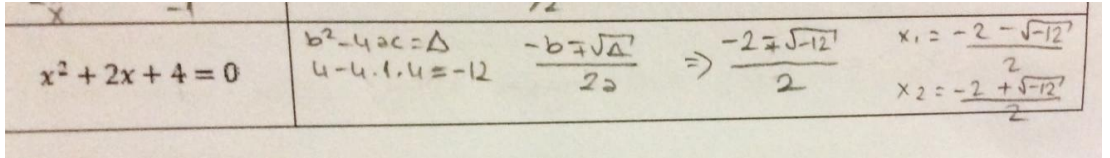 x² + 2x + 4 = 0
b² - 4ac = Δ
4 - 4.1.4 = -12
-b ∓ √Δ / 2a
⇒ -2 ∓ √-12 / 2
x₁ = -2 - √-12 / 2
x₂ = -2 + √-12 / 2